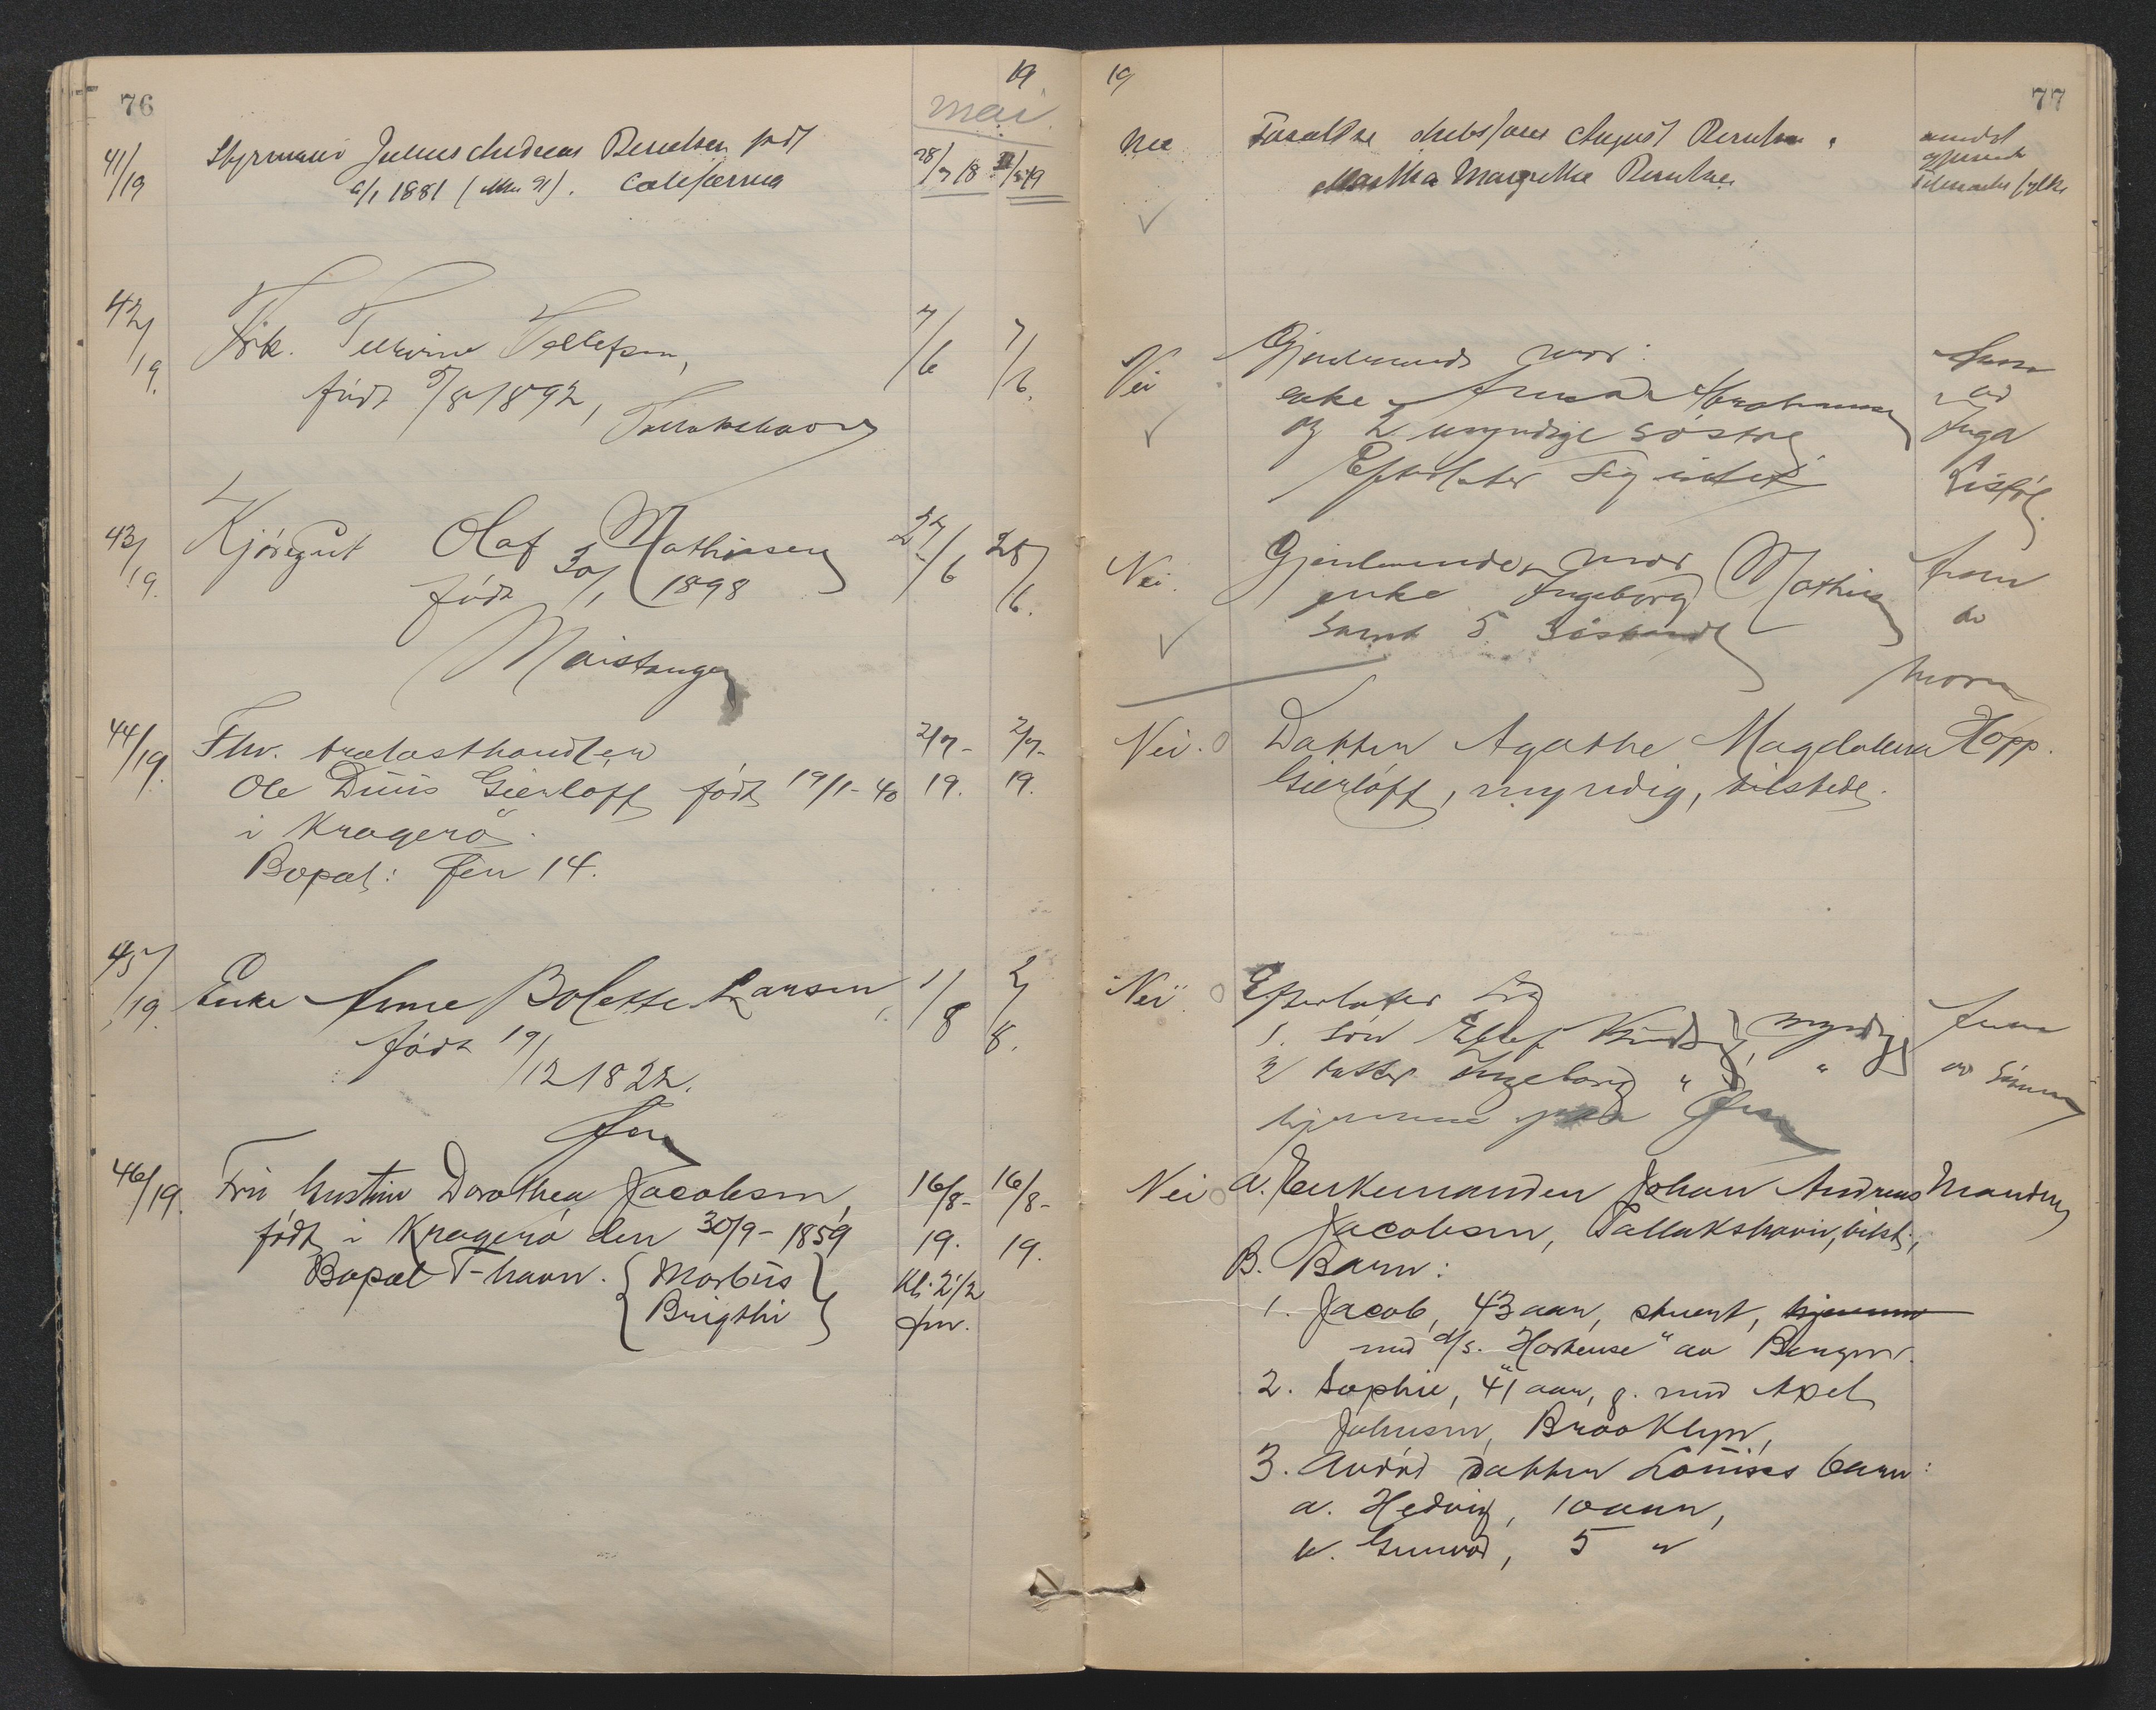 76
19
mai
41/19
Styrmand Julius Andreas Berntsen født
6/1 1881 ( ). California
28/9 18
42/19.
Frk. Tollefsen,
født 5/8 1892, Tallakshavn
7/6 7/6.
43/19.
Kjøregut Olaf Mathisen
født 30/1 1898
27/6 28/6.
44/19.
Fhv. trælasthandler
Ole Duus Gierløff født 19/1-40
i Kragerø.
Bopæl: Øen 14.
2/7-19. 2/7-19.
45/19.
Enke Anne Bolette Larsen,
født 19/12 1822.
Øen
1/8 2/8.
46/19.
Fru Kristine Dorothea Jacobsen,
født i Kragerø den 30/9-1859
Bopæl T-havn. { Morbus
Brigthi }
16/8-19. 16/8-19.
Kl. 2 1/2
fm.
19
77
Nei
Forældre August Berntsen
Martha Margrethe Berntsen
fylke
Nei
Gjenlevende mor:
enke Anna Abrahamsen
og 2 umyndige søstre
Efterlater sig intet
Anm
ved
Inga
Nei.
Gjenlevende mor
enke Ingeborg Mathisen
samt 5 søskende
Anm
av
Moren
Nei.
Datter Agathe Magdalena
Gierløff, myndig, tilstede.
Hopp.
Nei.
Efterlater sig
1. søn Ellef myndig
2 datter Ingeborg " "
hjemme paa Øen
Anm
av Sønnen
Nei
A. Enkemanden Johan Andreas
Jacobsen, Tallakshavn, tilst.,
Manden
B. Barn:
1. Jacob, 43 aar, stuert, hjemme
med d/s. "Hortense" av Bergen.
2. Sophie, 41 aar, g. med Axel
Johnsen, Brooklyn,
3. Avdød datter Louises barn:
a. Hedvig, 10 aar,
b. Gunvor, 5 "